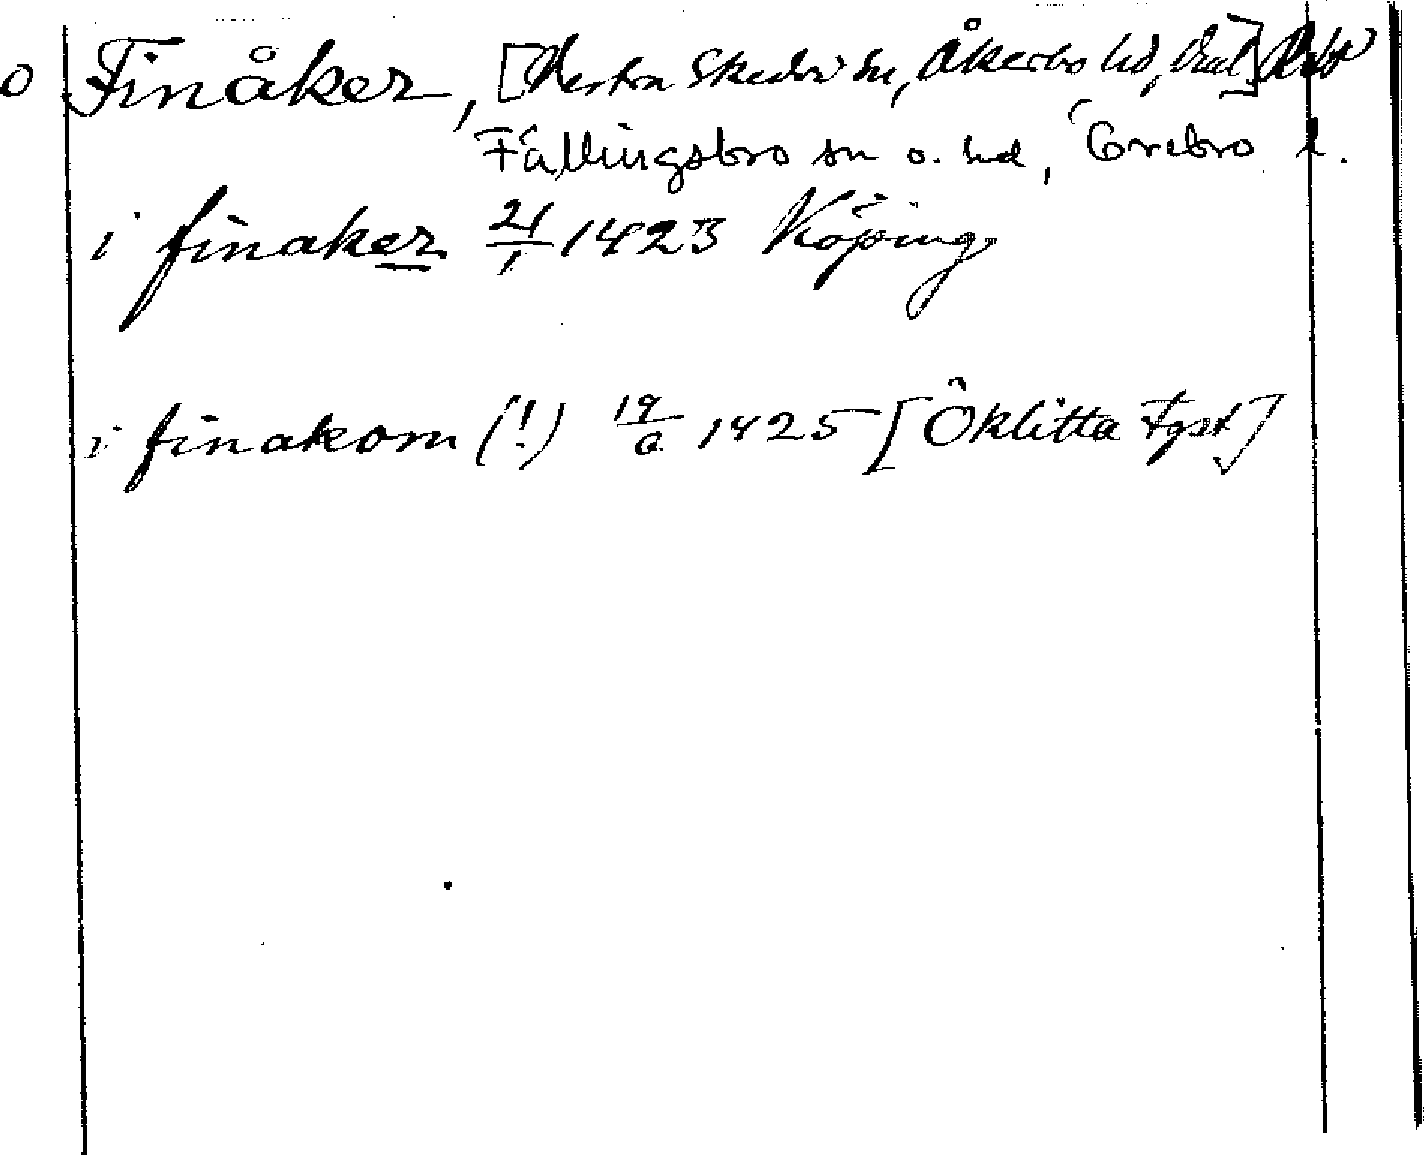 o Finåker, [Västra Skedvi sn, Åkerbo hd, Vstl]
Fällingsbro sn o. hd, Örebro l.
i finaker 21/1 1423 Köping
i finakom (!) 19/6 1425 [Öklitta Fgst]